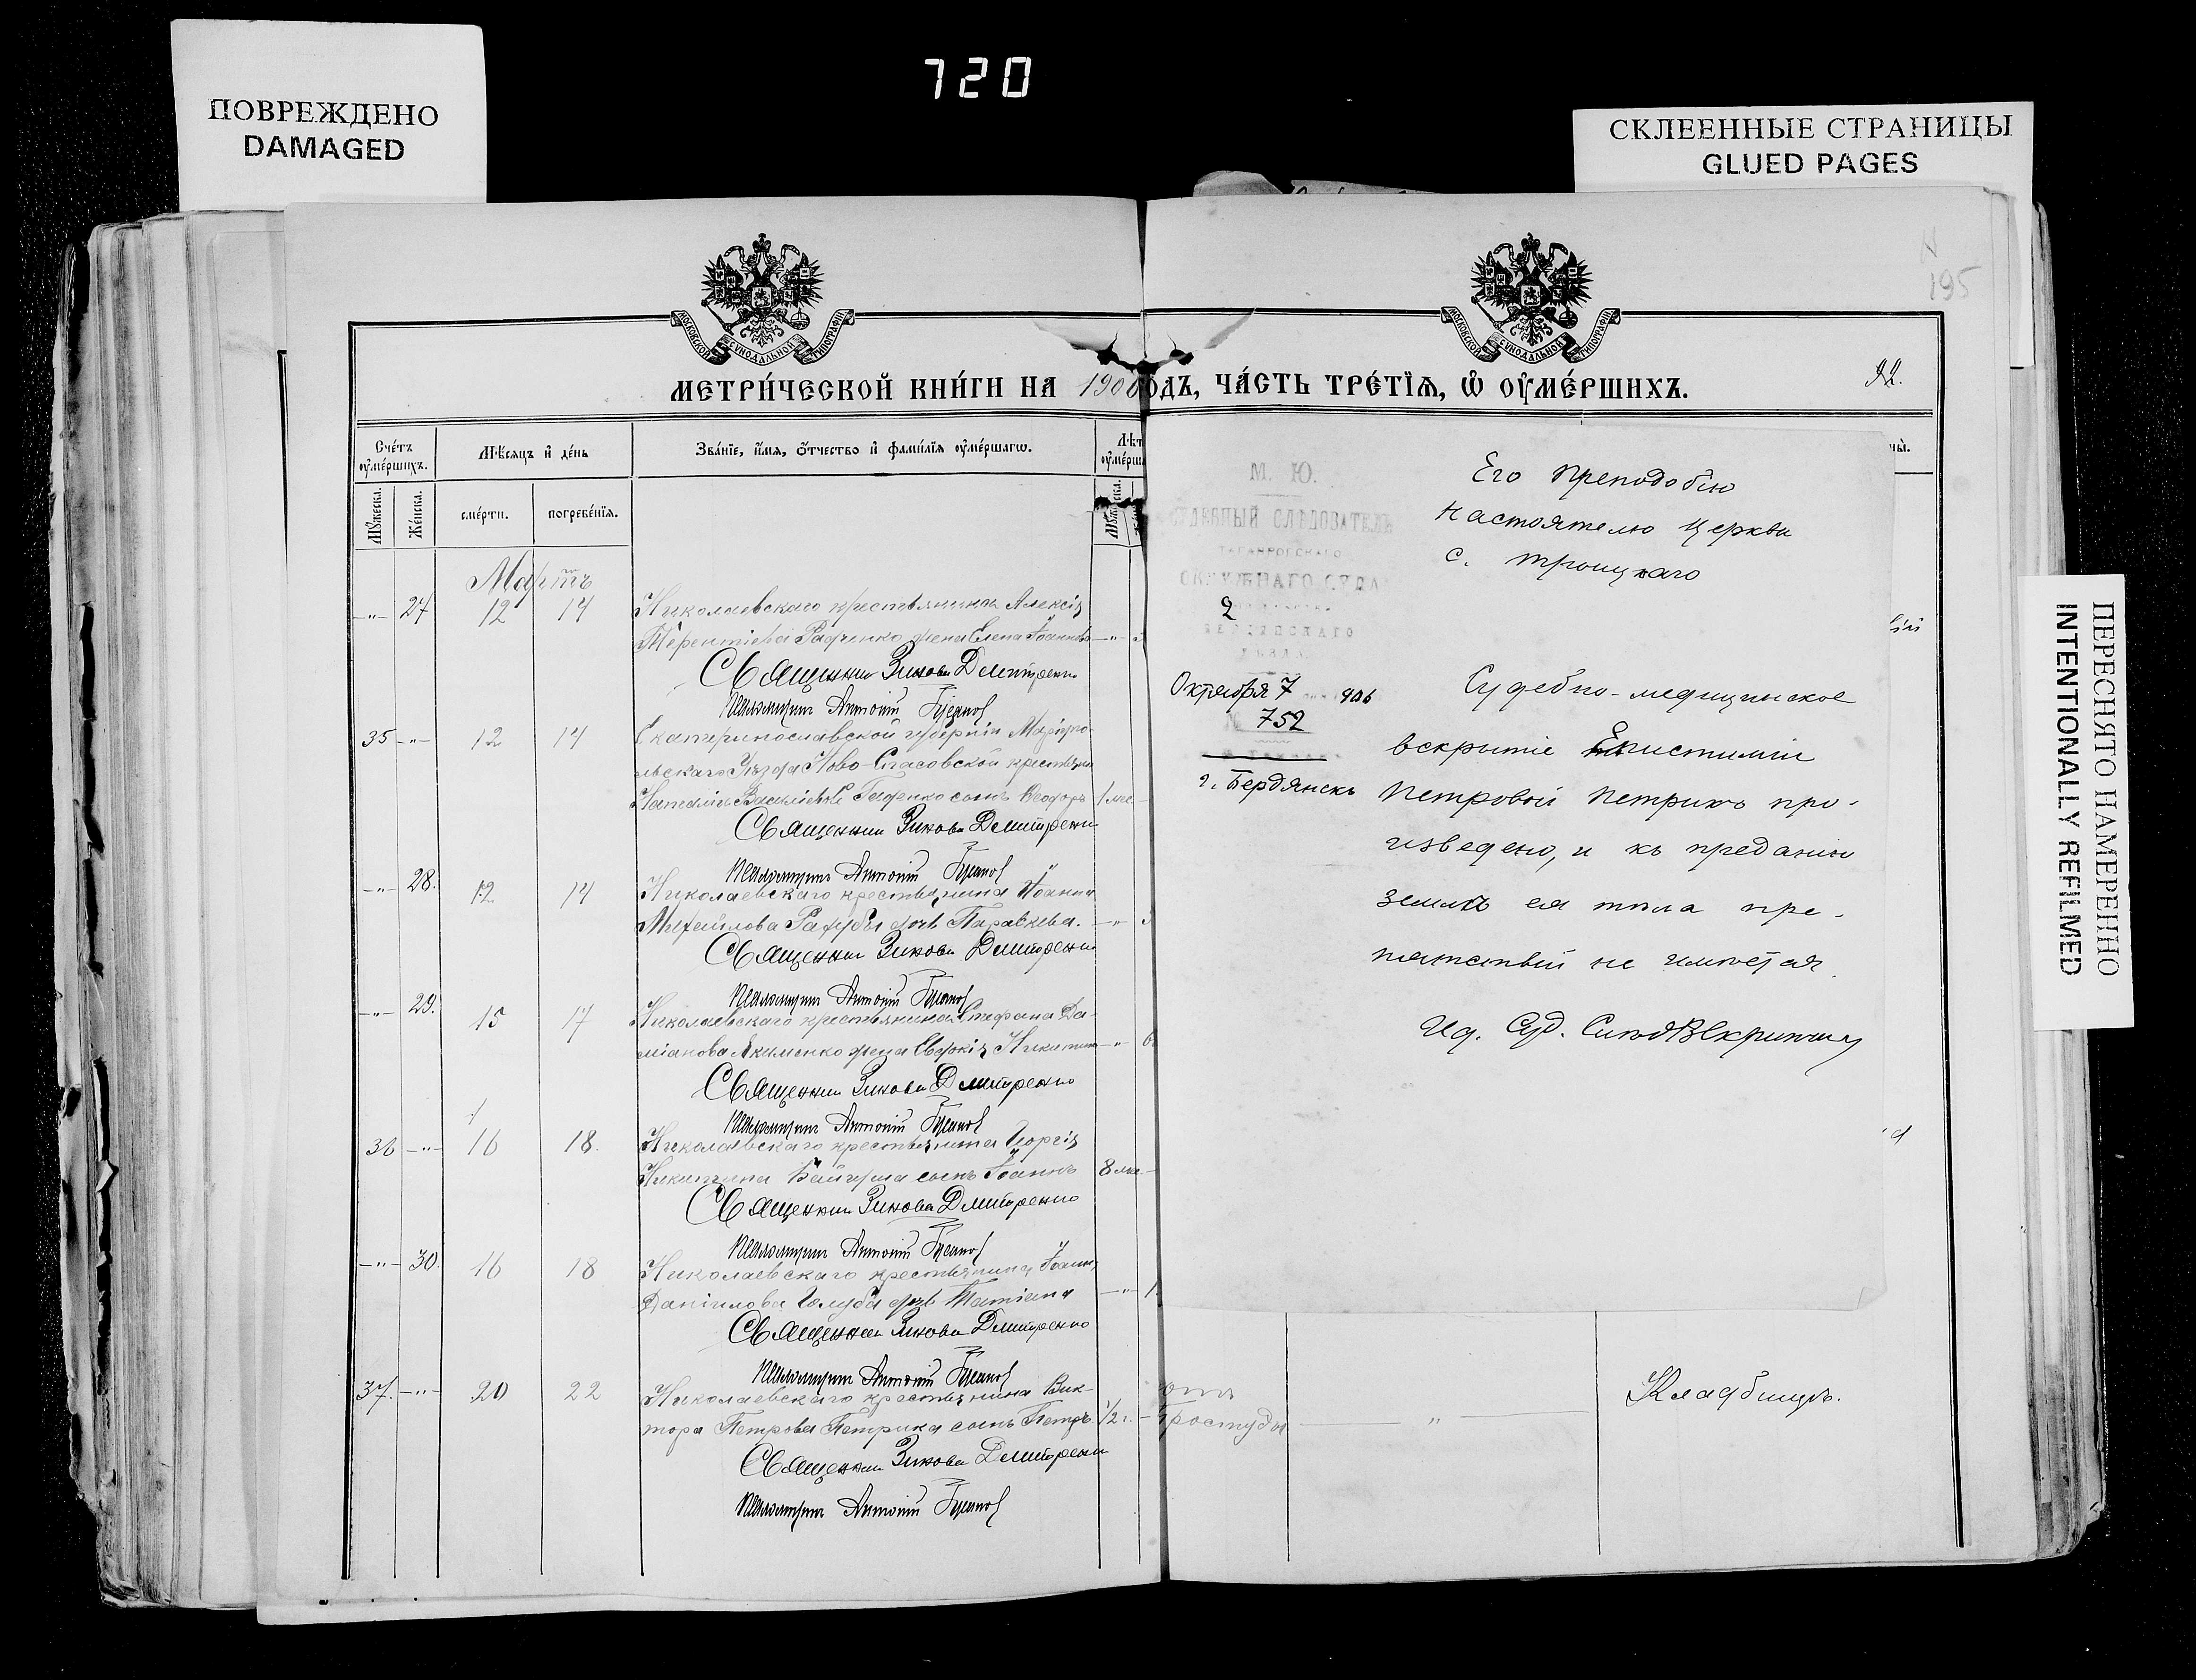 720
ПОВРЕЖДЕНО
DAMAGED
СКЛЕЕННЫЕ СТРАНИЦЫ
GLUED PAGES
ПЕРЕСНЯТО НАМЕРЕННО
INTENTIONALLY REFILMED
195
МОСКОВСКОЙ СѴНОДАЛЬНОЙ ТИПОГРАФІИ
МОСКОВСКОЙ СѴНОДАЛЬНОЙ ТИПОГРАФІИ
МЕТРИ́ЧЕСКОЙ КНИ́ГИ НА 1906 ОДЪ, ЧА́СТЬ ТРЕ́ТІѦ, Ѡ҆ ОУ҆МЕ́РШИХЪ.
Сче́тъ оу҆ме́ршихъ.
Мѣ́сяцъ и҆ де́нь
Зва́нїе, и҆́мѧ, ѻ҆́тчество и҆ фамі́лїѧ оу҆ме́ршагѡ.
Мꙋ́жеска.
Же́нска.
сме́рти.
погребе́нїѧ.
Мартъ
-"- 27 12 14 Николаевскаго крестьянина Алексія
Терентіева Радченко жена Елена Іоаннова -"-
Священник Зинова Дмитренко
Псаломщик Антоній
35 -"- 12 14 Екатеринославской губерніи Маріупо-
льскаго Уѣзда Ново-Спасовской крестьян
Наталіи Васильевой Гаценко сынъ Ѳеодоръ 1 мѣс.
Священник Зинова Дмитренко
Псаломщик Антоній
-"- 28. 12 14 Николаевскаго крестьянина Іоанна
Михайлова дочь Параскева. -"-
Священник Зинова Дмитренко
Псаломщик Антоній
-"- 29. 15 17 Николаевскаго крестьянина Стефана Да-
міанова Якименко жена Евдокія Никитина -"- 6
Священник Зинова Дмитренко
Псаломщик Антоній
36 -"- 16 18. Николаевскаго крестьянина Георгія
Никитина сынъ Іоаннъ 8 мѣс.
Священник Зинова Дмитренко
Псаломщик Антоній
-"- 30. 16 18 Николаевскаго крестьянина Іоанна
Даніилова Голуба дочь Татіана -"- 1
Священник Зинова Дмитренко
Псаломщик Антоній
37. -"- 20 22 Николаевскаго крестьянина Вик-
тора Петрова Петрика сынъ Петръ 1/2 г.
Священник Зинова Дмитренко
Псаломщик Антоній
М. Ю.
СУДЕБНЫЙ СЛѢДОВАТЕЛЬ
ТАГАНРОГСКАГО
ОКРУЖНАГО СУДА
2
БЕРДЯНСКАГО
УѢЗДА
Октября 7 906
№ 752
г. Бердянскъ
Его Преподобію
Настоятелю Церкви
с. Троицкаго
Судебно-медицинское
вскрытіе Епистиміи
Петровой Петрикъ про-
изведено, и къ преданію
землѣ ея тѣла пре-
пятствій не имѣется.
Ид. Суд.
отъ
простуды
-"-
Кладбищѣ.